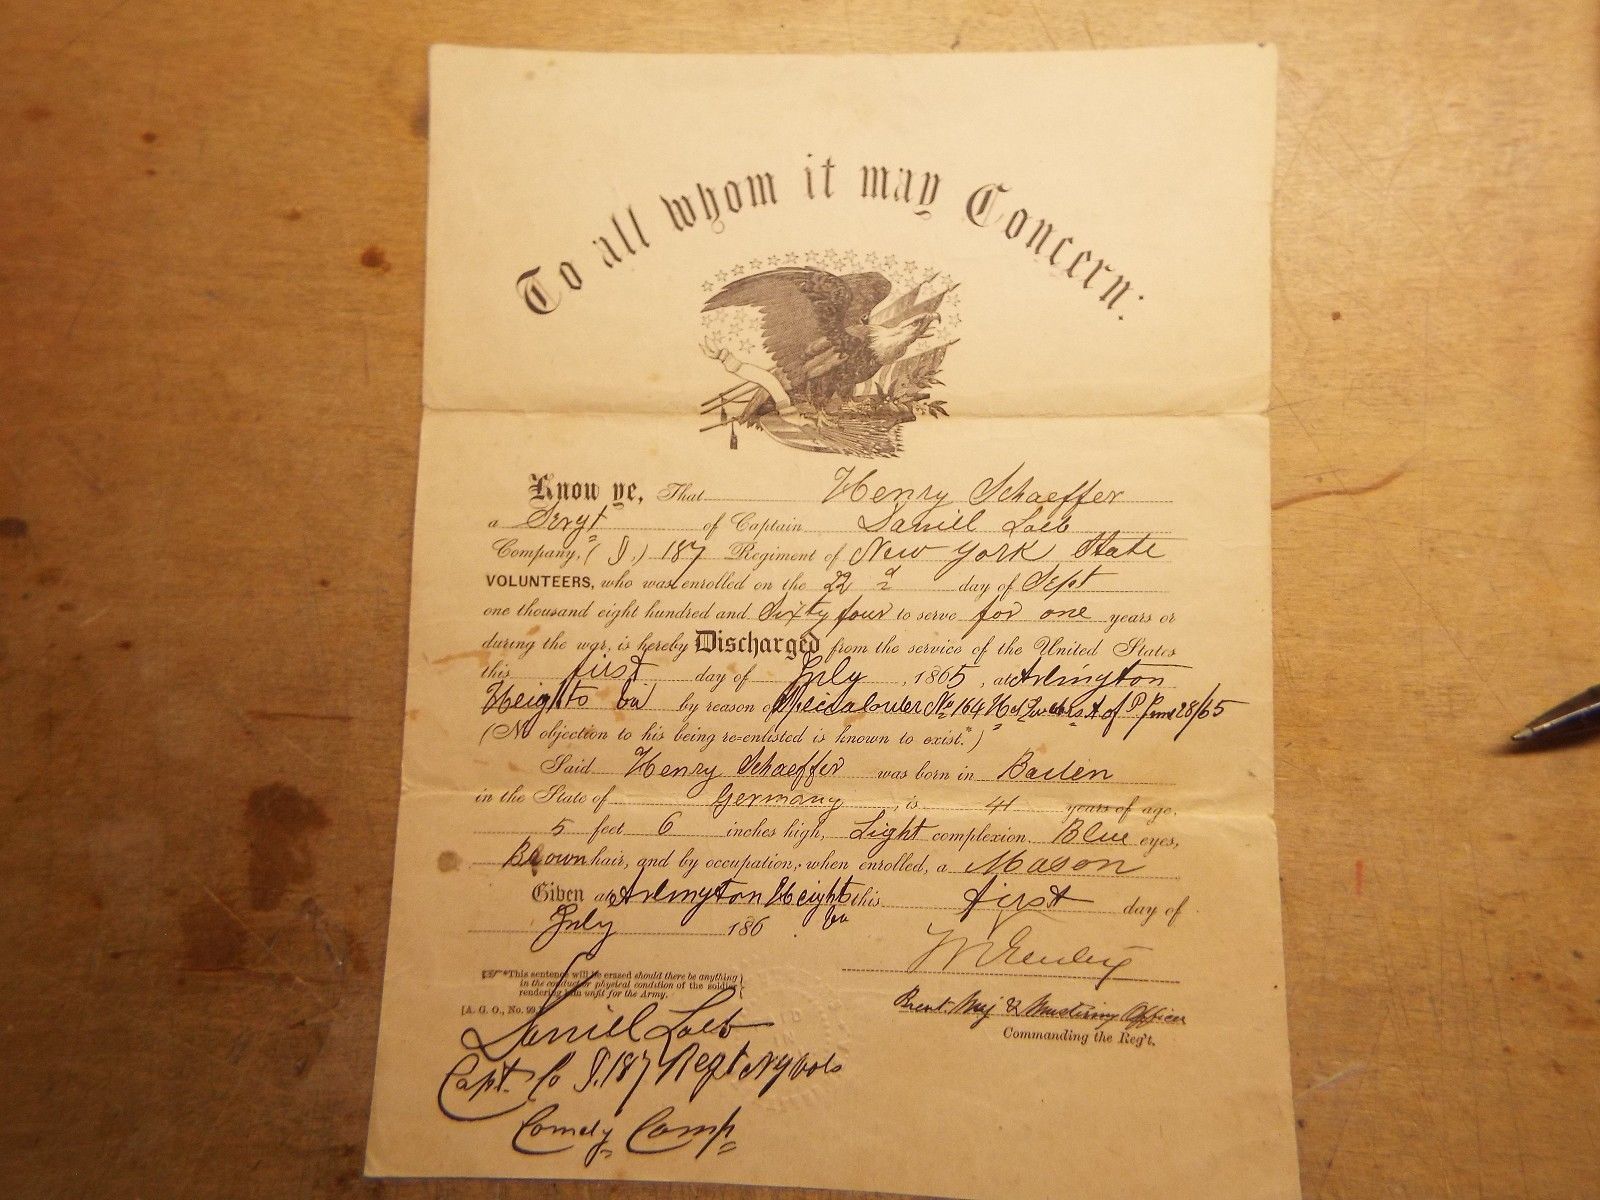 To all whom it may Concern:
Know ye, That Henry Schaeffer
a Sergt of Captain Daniell Loeb
Company, (I,) 187 Regiment of New York State
VOLUNTEERS, who was enrolled on the 22d day of Sept
one thousand eight hundred and Sixty four to serve for one years or
during the war, is hereby Discharged from the service of the United States
this first day of July, 1865, at Arlington
Heights Va by reason of Special order No 164 Hd Qurters A of P June 28/65
(No objection to his being re-enlisted is known to exist.*)
Said Henry Schaeffer was born in Baden
in the State of Germany, is 41 years of age,
5 feet 6 inches high, Light complexion, Blue eyes,
Brown hair, and by occupation, when enrolled, a Mason
Given at Arlington Heights this first day of
July 186 . Va
*This sentence will be erased should there be anything
in the conduct or physical condition of the soldier
rendering him unfit for the Army.
[A. G. O., No. 99.]
Daniell Loeb
Capt. Co I. 187 Regt NY Vols
Comdg Comp
Brevt. Maj & Mustering Officer
Commanding the Reg't.